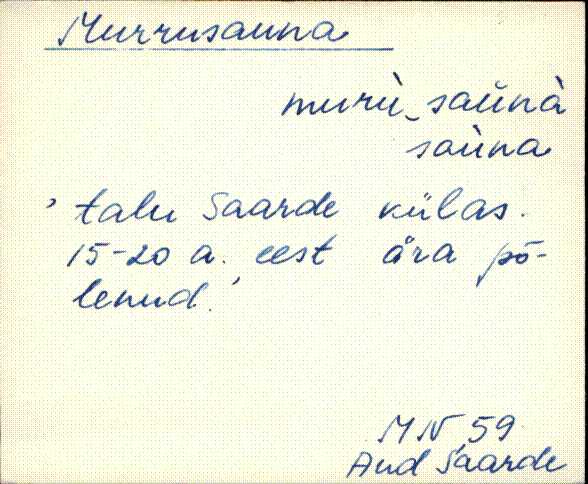 Murrusauna
murù_saùnà
saùna
' talu Saarde külas.
15-20 a. eest ära põ-
lenud.'
M N, 59
Aud Saarde